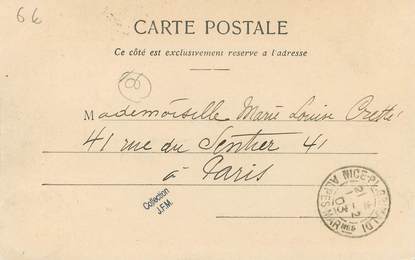 6k
CARTE POSTALE
Ce côté est exclusivement reserve a l'adresse
66
Mademoiselle Marie Louise
41 rue du Sentier 41
à Paris
Collection
J.F.M.
NICE-PL. GRIMALDI
21 - 2
03
ALPES MAR mes